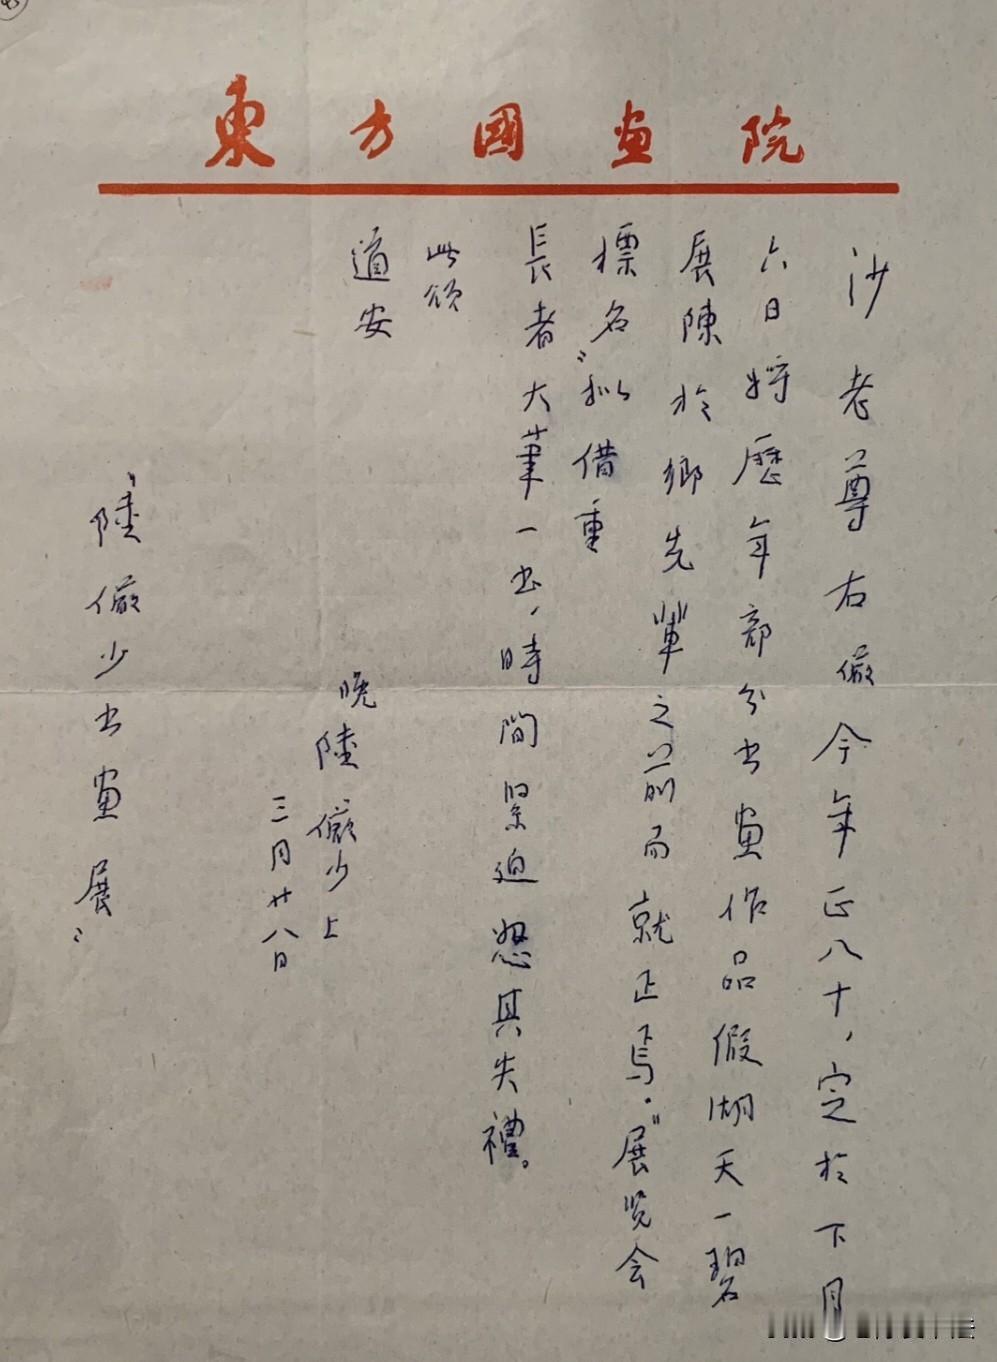 東方國畫院
沙老尊右儼今年正八十，定於下月
六日將歷年部分书畫作品假湖天一碧
展陳於鄉先輩之前而就正焉。“展览会
標名”拟借重
長者大筆一书，時間緊迫恕其失禮。
此頌
道安
晚陸儼少上
三月廿八日
“陸儼少书畫展”